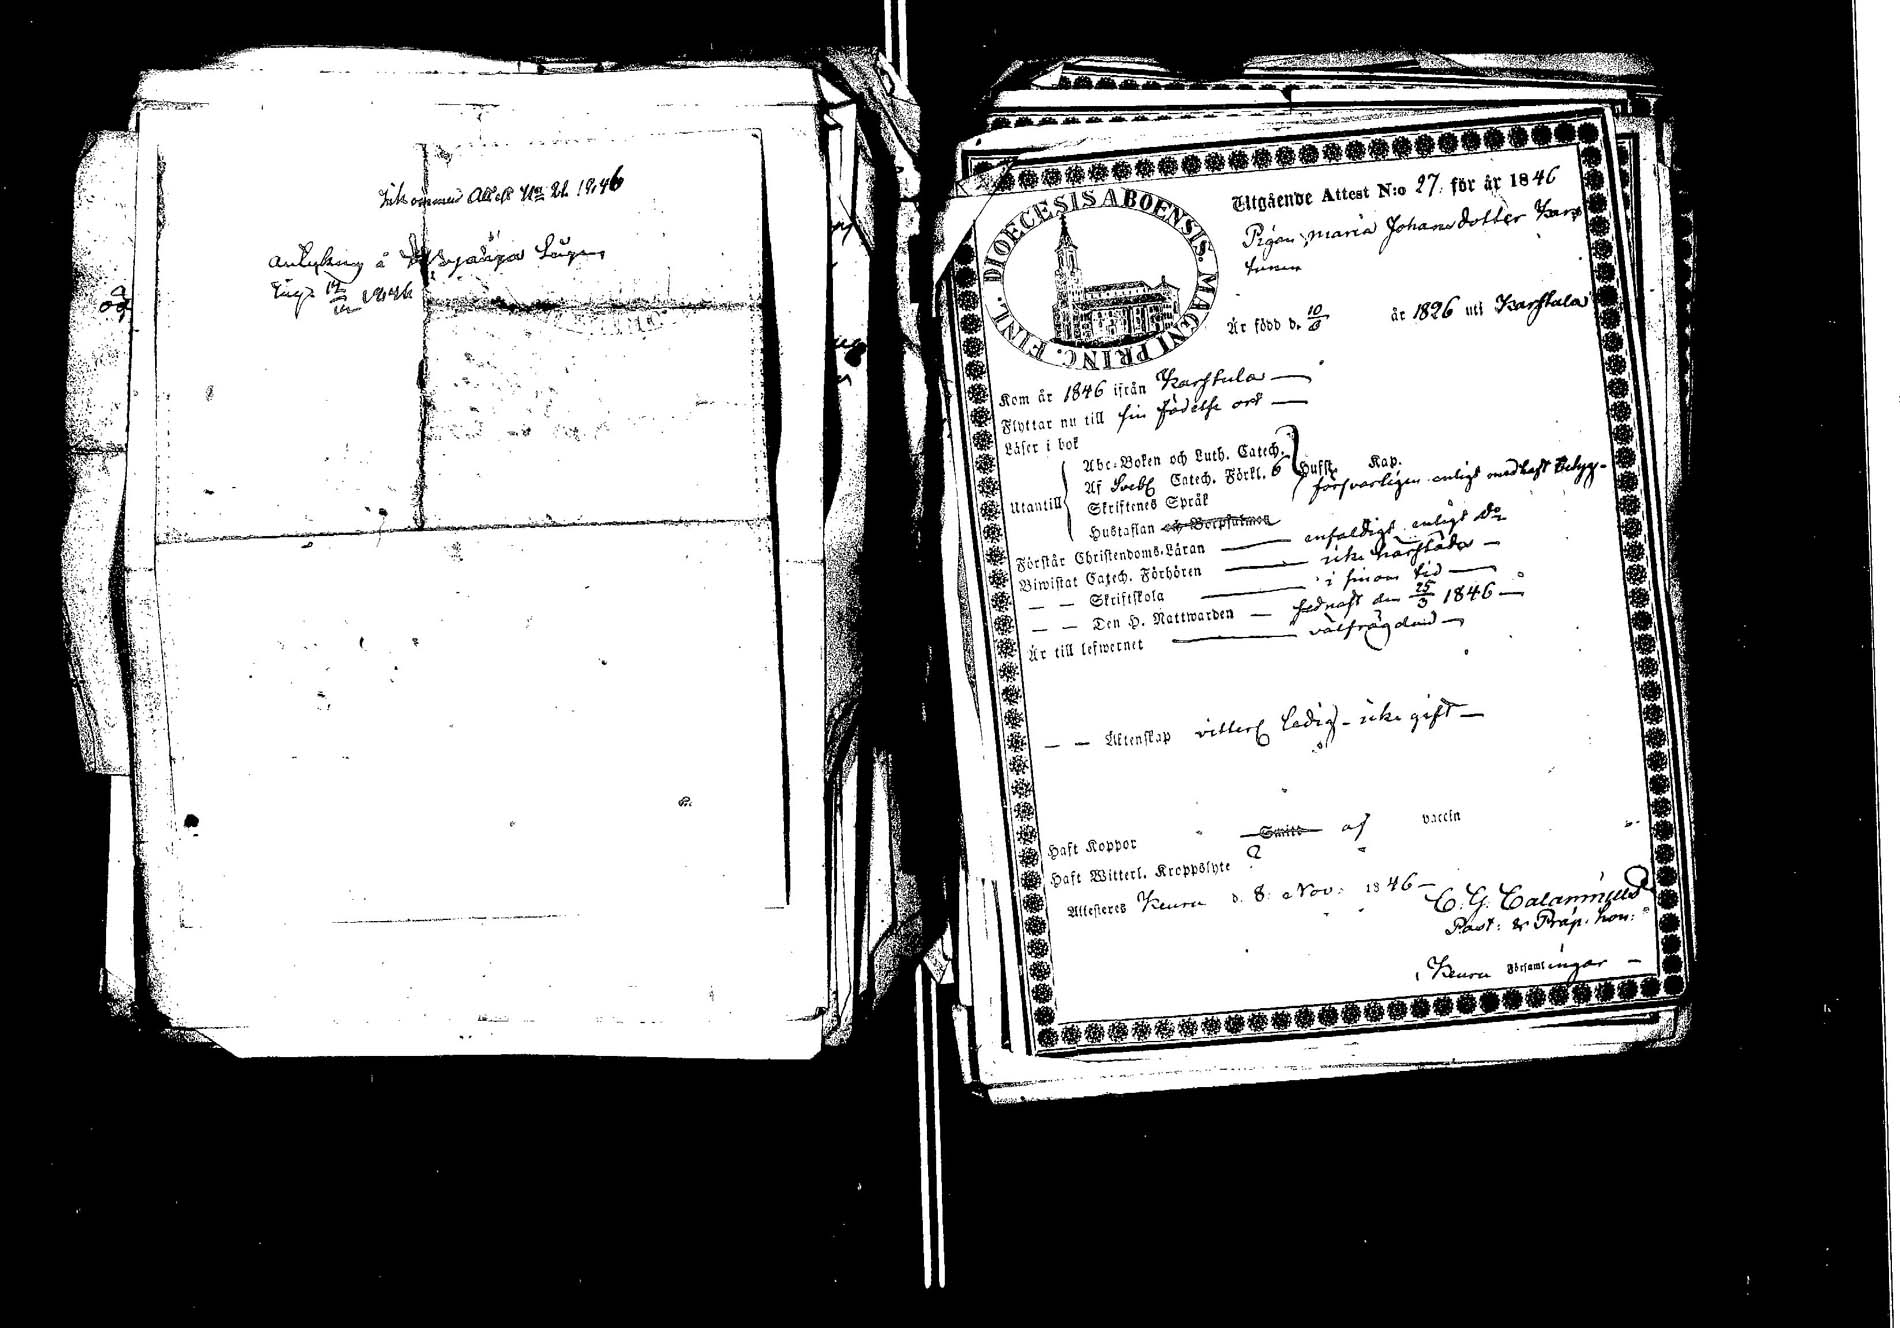 Inkommen Attest N:o 21. 1846
å
Ing.
1846
DIOECESIS ABOENSIS. MAGNI PRINC. FINL.
Utgående Attest N:o 27. för år 1846
Pigan Maria Johansdotter Kars
tunen
Är född d. 10/6 år 1826 uti Karstula
Kom år 1846 ifrån Karstula —
Flyttar nu till sin födelse ort —
Läser i bok
Utantill
Abc-Boken och Luth. Catech.
Af Sveb. Catech. Förkl. 6 Hufst. Kap.
försvarligen enligt medhaft betyg-
Skriftenes Språk
Hustaflan och Botpsalmen
Förstår Christendoms-Läran — enfaldigt enligt d:o
Biwistat Catech. Förhören — icke härstädes —
— — Skriftskola — i sinom tid —
— — Den H. Nattwarden — sednast den 25/3 1846 —
Är till lefwernet — välfrägdad —
— — Äktenskap vitterl. ledig - icke gift —
Haft Koppor Smitt af vaccin
Haft Witterl. Kroppslyte ?
Attesteres Keuru d. 8. Nov. 1846 —
C. G. Calamnius
Past: & Präp. hon:
i Keuru Församlingar —